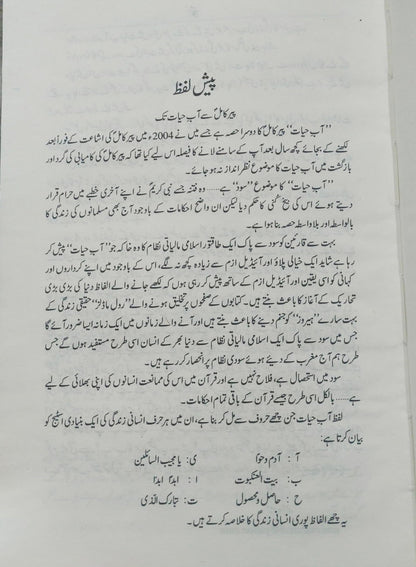 پیش لفظ
پیر کامل سے آب حیات تک
’’آب حیات‘‘ پیر کامل کا دوسرا حصہ ہے جسے میں نے 2004ء میں پیر کامل کی اشاعت کے فوراً بعد
لکھنے کے بجائے کچھ سال بعد آپ کے سامنے لانے کا فیصلہ اس لیے کیا تھا کہ پیر کامل کی کامیابی کی گرد اور
بازگشت میں آب حیات کا موضوع نظر انداز نہ ہو جائے۔
’’آب حیات‘‘ کا موضوع ’’سود‘‘ ہے..... وہ فتنہ جسے نبی کریمؐ نے اپنے آخری خطبے میں حرام قرار
دیتے ہوئے اس کی بیخ کنی کا حکم دیا لیکن ان واضح احکامات کے باوجود آج بھی مسلمانوں کی زندگی کا
بالواسطہ اور بلاواسطہ حصہ بنا ہوا ہے۔
بہت سے قارئین کو سود سے پاک ایک طاقتور اسلامی مالیاتی نظام کا وہ خاکہ جو ’’آب حیات‘‘ پیش کر
رہا ہے شاید ایک خیالی پلاؤ اور آئیڈیل ازم سے زیادہ کچھ نہ لگے، اس کے باوجود میں اپنے کرداروں اور
کہانی کو اسی یقین اور آئیڈیل ازم کے ساتھ پیش کر رہی ہوں کہ لکھے جانے والے الفاظ دنیا کی بڑی بڑی
تحاریک کے آغاز کا باعث بنتے ہیں۔ کتابوں کے صفحوں پر تخلیق ہونے والے ’’رول ماڈلز‘‘ حقیقی زندگی کے
بہت سارے ’’ہیروز‘‘ کو جنم دینے کا باعث بنتے ہیں اور آنے والے زمانوں میں ایک زمانہ ایسا ضرور آئے گا
جس میں سود سے پاک ایک اسلامی مالیاتی نظام سے دنیا بھر کے انسان اسی طرح مستفید ہوں گے جس
طرح ہم آج مغرب کے دیے ہوئے سودی نظام پر انحصار کر رہے ہیں۔
سود میں استحصال ہے، فلاح نہیں ہے اور قرآن میں اس کی ممانعت انسانوں کی اپنی بھلائی کے لیے
ہے..... بالکل اسی طرح جیسے قرآن کے باقی تمام احکامات۔
لفظ آب حیات جن چھ حروف سے مل کر بنا ہے، ان میں ہر حرف انسانی زندگی کی ایک بنیادی اسٹیج کو
بیان کرتا ہے:
آ: آدم و حوا ی: یا مجیب السائلین
ب: بیت العنکبوت ا: ابداً ابداً
ح: حاصل و محصول ت: تبارک الذی
یہ چھ الفاظ پوری انسانی زندگی کا خلاصہ کرتے ہیں۔